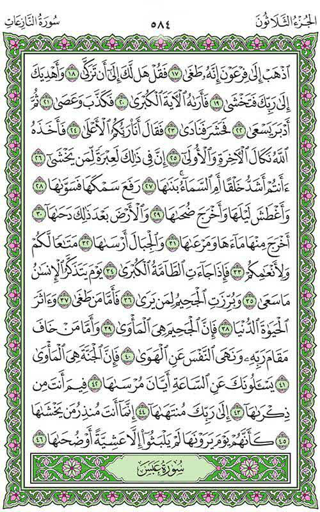 الجزء الثلاثون
٥٨٤
سورة النازعات
ٱذْهَبْ إِلَىٰ فِرْعَوْنَ إِنَّهُۥ طَغَىٰ ١٧ فَقُلْ هَل لَّكَ إِلَىٰٓ أَن تَزَكَّىٰ ١٨ وَأَهْدِيَكَ
إِلَىٰ رَبِّكَ فَتَخْشَىٰ ١٩ فَأَرَىٰهُ ٱلْءَايَةَ ٱلْكُبْرَىٰ ٢٠ فَكَذَّبَ وَعَصَىٰ ٢١ ثُمَّ
أَدْبَرَ يَسْعَىٰ ٢٢ فَحَشَرَ فَنَادَىٰ ٢٣ فَقَالَ أَنَا۠ رَبُّكُمُ ٱلْأَعْلَىٰ ٢٤ فَأَخَذَهُ
ٱللَّهُ نَكَالَ ٱلْءَاخِرَةِ وَٱلْأُولَىٰٓ ٢٥ إِنَّ فِى ذَٰلِكَ لَعِبْرَةً لِّمَن يَخْشَىٰٓ ٢٦
ءَأَنتُمْ أَشَدُّ خَلْقًا أَمِ ٱلسَّمَآءُ ۚ بَنَىٰهَا ٢٧ رَفَعَ سَمْكَهَا فَسَوَّىٰهَا ٢٨
وَأَغْطَشَ لَيْلَهَا وَأَخْرَجَ ضُحَىٰهَا ٢٩ وَٱلْأَرْضَ بَعْدَ ذَٰلِكَ دَحَىٰهَآ ٣٠
أَخْرَجَ مِنْهَا مَآءَهَا وَمَرْعَىٰهَا ٣١ وَٱلْجِبَالَ أَرْسَىٰهَا ٣٢ مَتَـٰعًا لَّكُمْ
وَلِأَنْعَـٰمِكُمْ ٣٣ فَإِذَا جَآءَتِ ٱلطَّآمَّةُ ٱلْكُبْرَىٰ ٣٤ يَوْمَ يَتَذَكَّرُ ٱلْإِنسَـٰنُ
مَا سَعَىٰ ٣٥ وَبُرِّزَتِ ٱلْجَحِيمُ لِمَن يَرَىٰ ٣٦ فَأَمَّا مَن طَغَىٰ ٣٧ وَءَاثَرَ
ٱلْحَيَوٰةَ ٱلدُّنْيَا ٣٨ فَإِنَّ ٱلْجَحِيمَ هِىَ ٱلْمَأْوَىٰ ٣٩ وَأَمَّا مَنْ خَافَ
مَقَامَ رَبِّهِۦ وَنَهَى ٱلنَّفْسَ عَنِ ٱلْهَوَىٰ ٤٠ فَإِنَّ ٱلْجَنَّةَ هِىَ ٱلْمَأْوَىٰ
٤١ يَسْـَٔلُونَكَ عَنِ ٱلسَّاعَةِ أَيَّانَ مُرْسَىٰهَا ٤٢ فِيمَ أَنتَ مِن
ذِكْرَىٰهَآ ٤٣ إِلَىٰ رَبِّكَ مُنتَهَىٰهَآ ٤٤ إِنَّمَآ أَنتَ مُنذِرُ مَن يَخْشَىٰهَا
٤٥ كَأَنَّهُمْ يَوْمَ يَرَوْنَهَا لَمْ يَلْبَثُوٓا۟ إِلَّا عَشِيَّةً أَوْ ضُحَىٰهَا ٤٦
سورة عبس